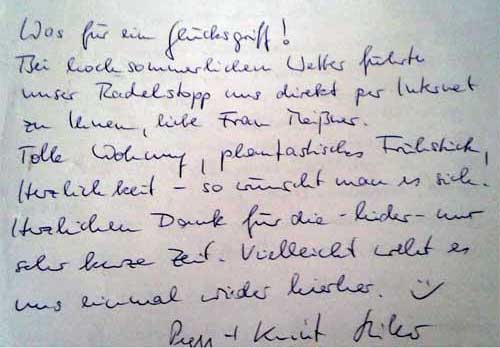 Was für ein Glücksgriff!
Bei hochsommerlichem Wetter führte
unser Radelstopp uns direkt per Internet
zu Ihnen, liebe Frau Meißner.
Tolle Wohnung, phantastisches Frühstück,
Herzlichkeit - so wünscht man es sich.
Herzlichen Dank für die - leider - nur
sehr kurze Zeit. Vielleicht weht es
uns einmal wieder hierher. ☺
+ Knut